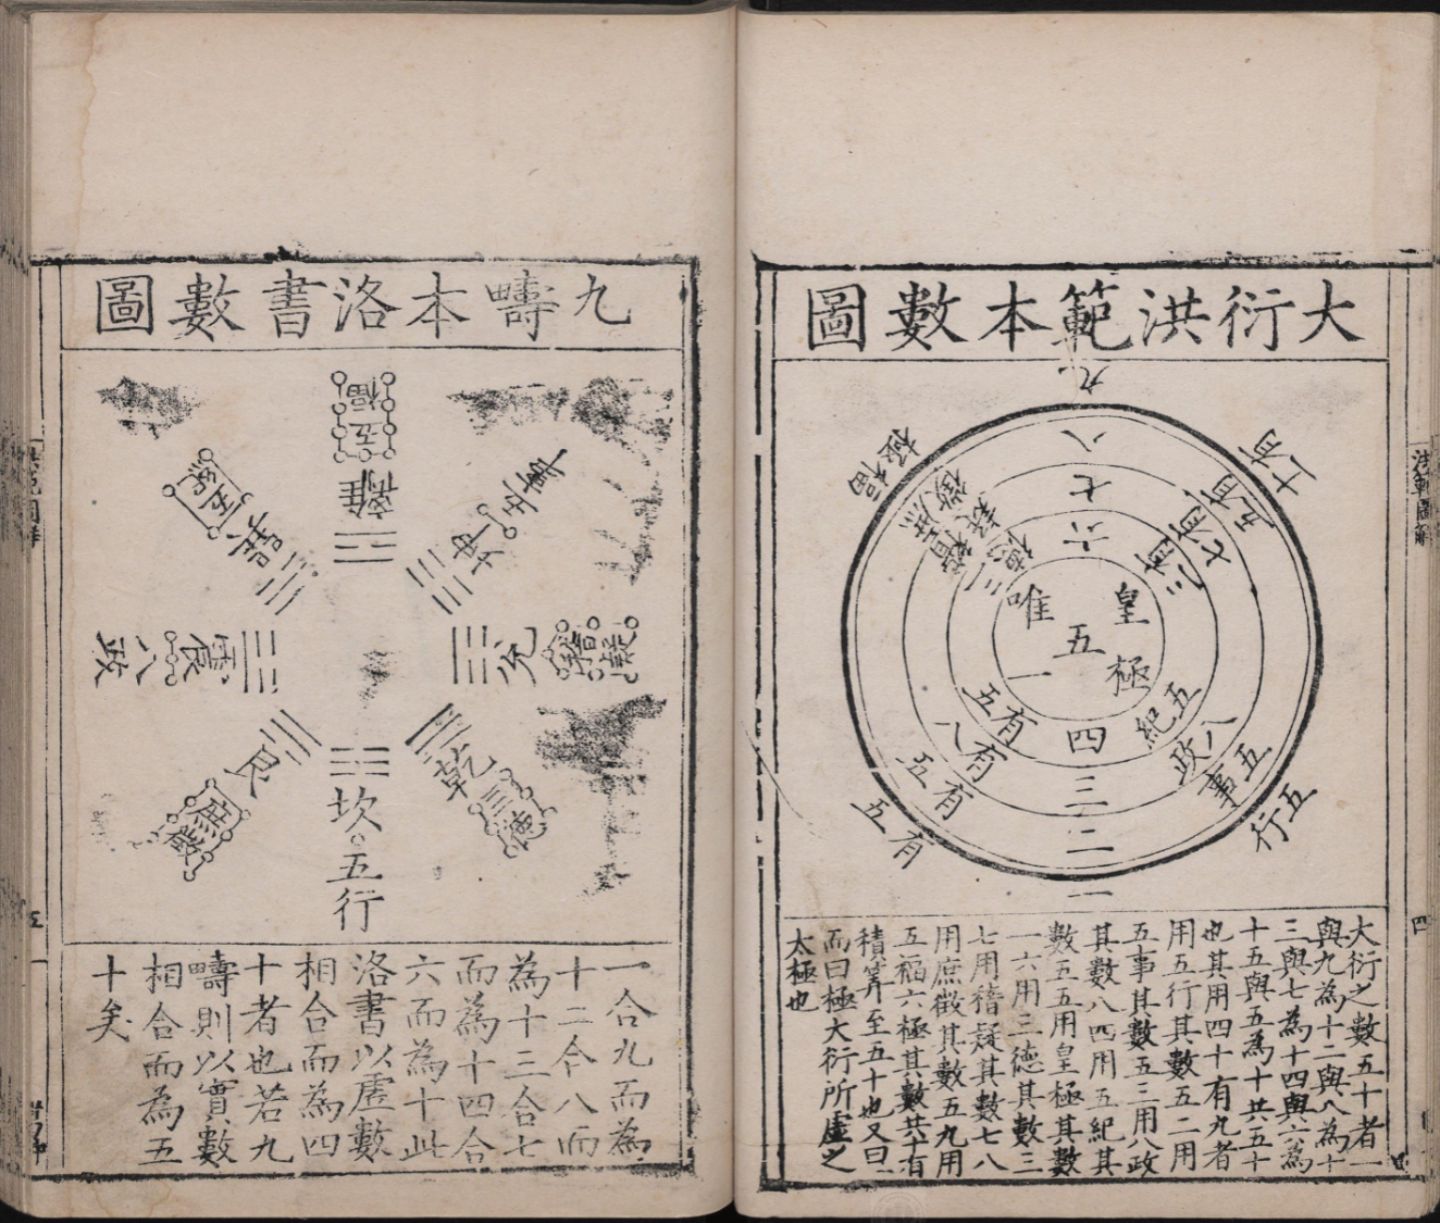 大衍洪範本數圖
九
八
七
六
皇極
五
唯一
四
三
二
一
五紀
有五
八政
有八
五事
有五
五行
有五
三德
有三
稽疑
有七
庶徵
有五
福極
十有一
大衍之數五十者一
與九為十二與八為十
三與七為十四與六為
十五與五為十共五十
也其用四十有九者
用五行其數五二用
五事其數五三用八政
其數八四用五紀其
數五五用皇極其數
一六用三德其數三
七用稽疑其數七八
用庶徵其數五九用
五福六極其數共十有
積筭至五十也又曰
而曰極大衍所虛之
太極也
洪範圖解
四
九疇本洛書數圖
五福
離
五事
坤
稽疑
兌
三德
乾
坎
五行
艮
庶徵
震
八政
巽
五紀
一合九而為
十二合八而
為十三合七
而為十四合
六而為十此
洛書以虛數
相合而為四
十者也若九
疇則以實數
相合而為五
十矣
五